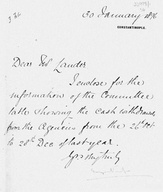 30 January
CONSTANTINOPLE
Dear Sir
I enclose for the
information of the Committee
table showing the cash withdrawn
from the Agencies from the 26th Oct
to 28th Dec of last year.
Yrs very truly